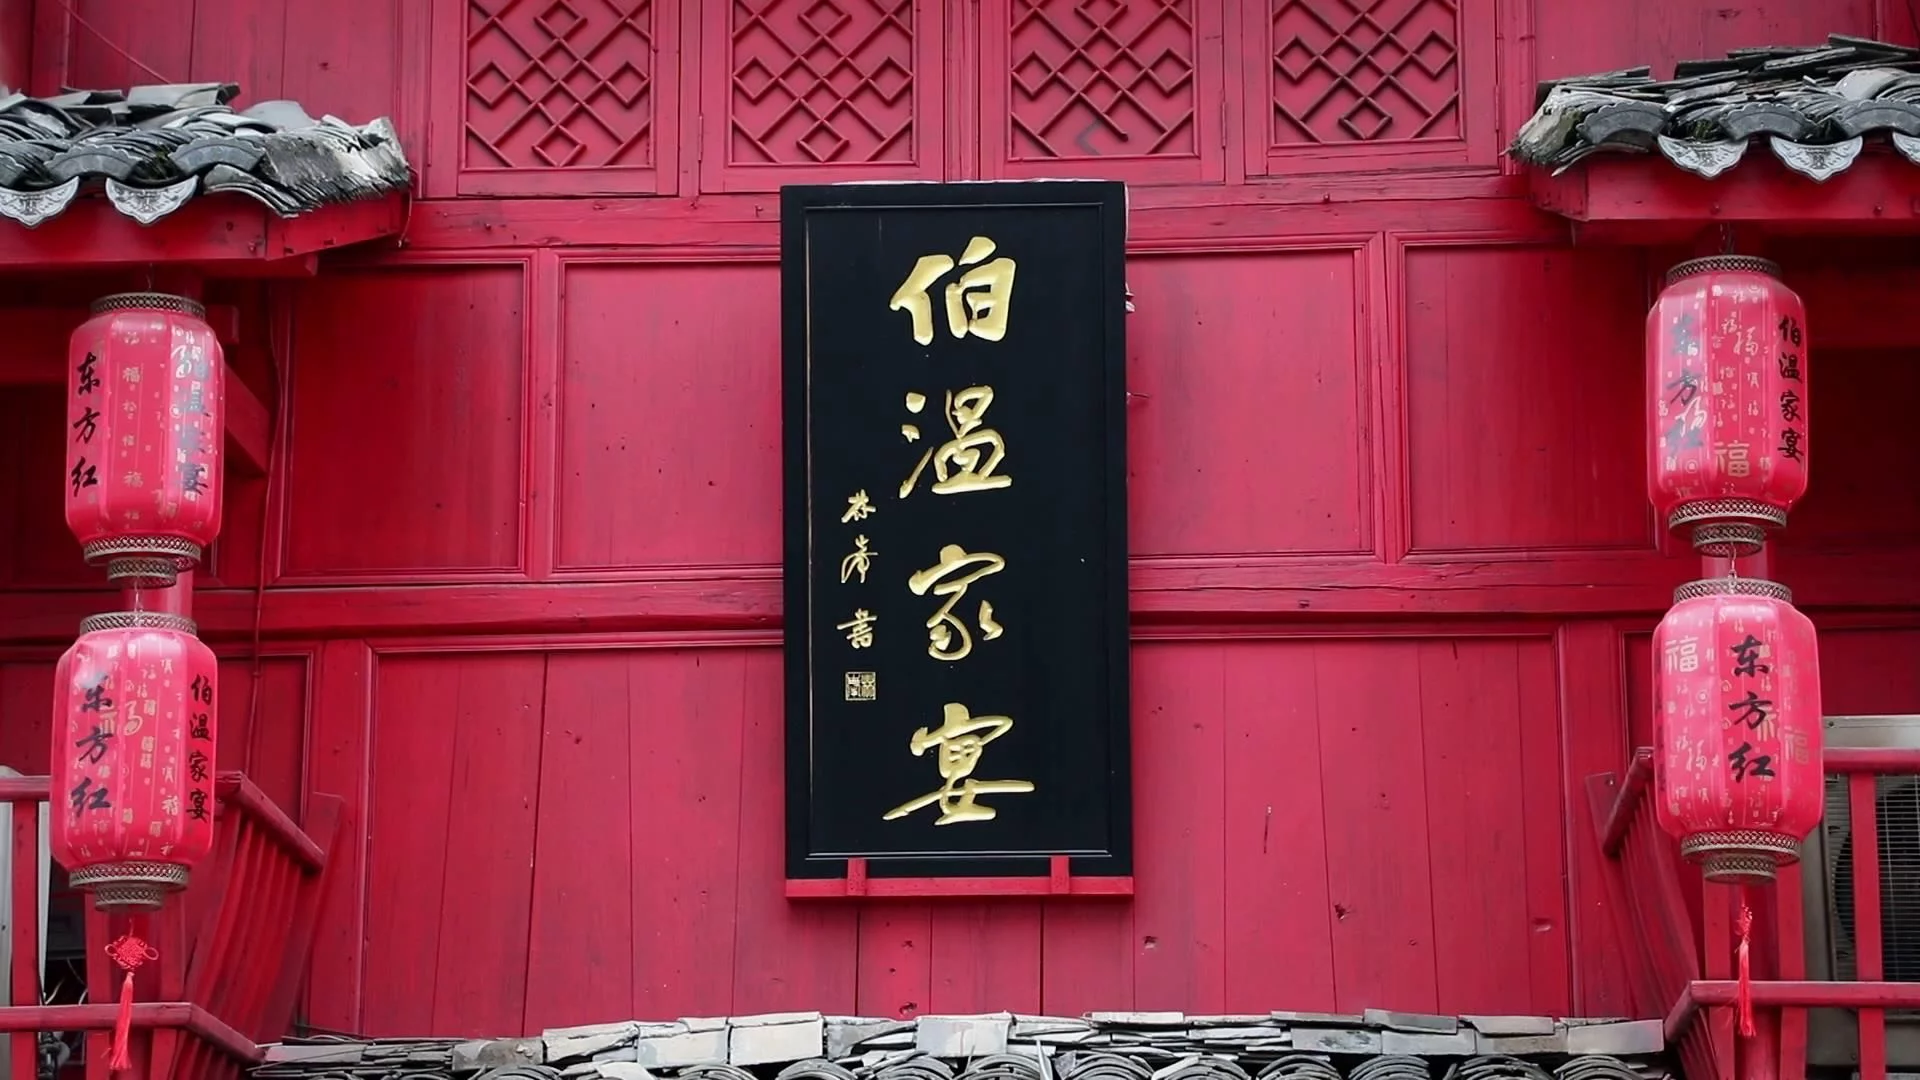 伯温家宴
林岸书
东方红
伯温家宴
东方红
伯温家宴
东方红
伯温家宴
福
东方红
福